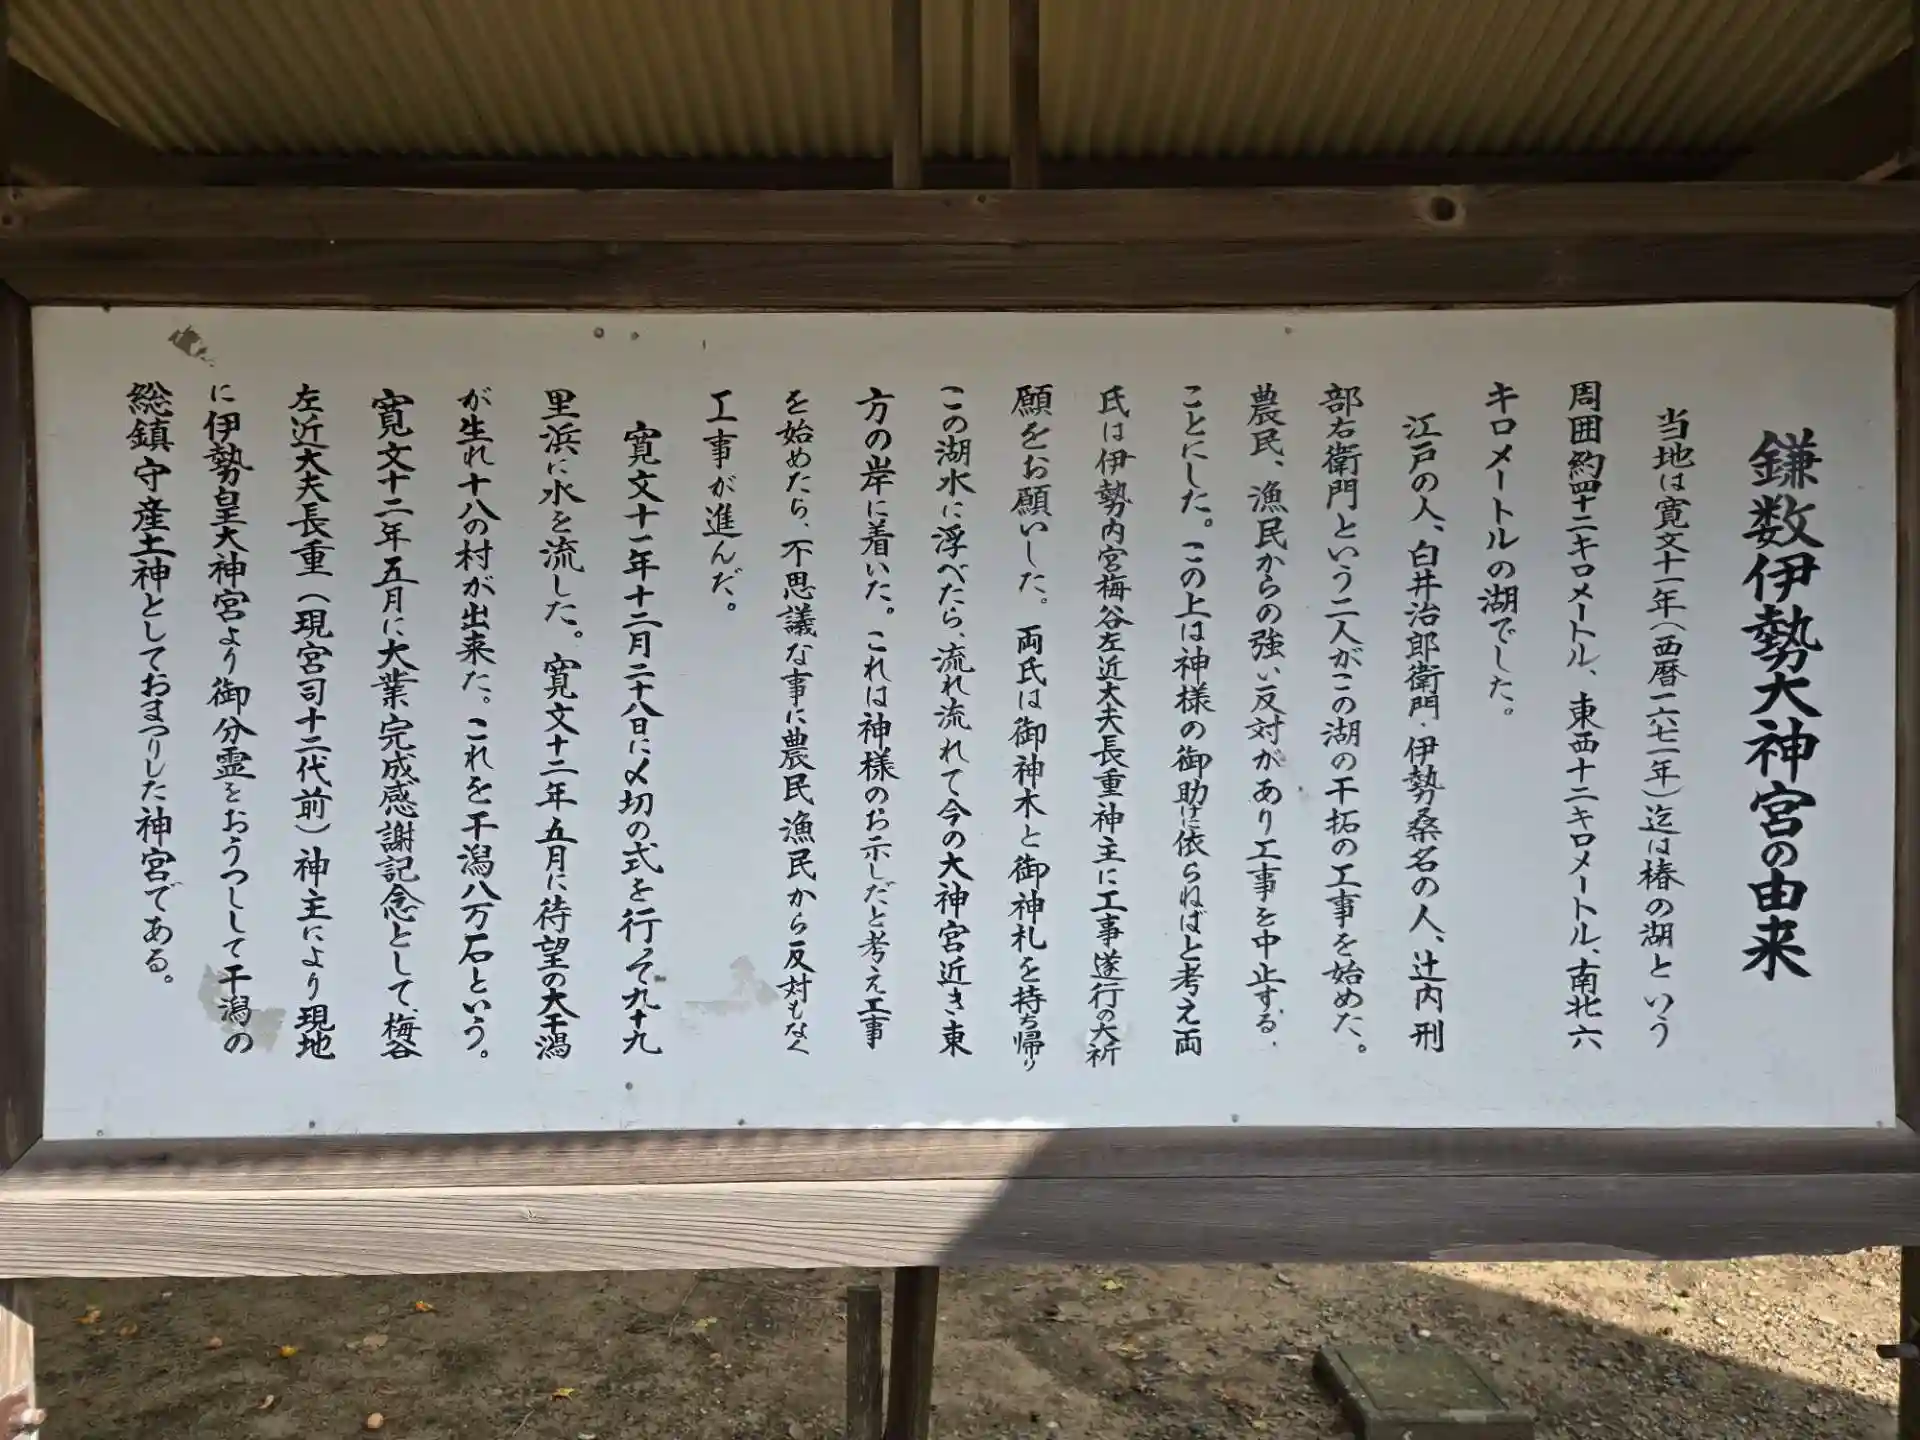 鎌数伊勢大神宮の由来
当地は寛文十一年(西暦一六七一年)迄は椿の湖という
周囲約四十二キロメートル、東西十二キロメートル、南北六
キロメートルの湖でした。
江戸の人、白井治郎衛門・伊勢桑名の人、辻内刑
部右衛門という二人がこの湖の干拓の工事を始めた。
農民、漁民からの強い反対があり工事を中止する、
ことにした。この上は神様の御助けに依らねばと考え両
氏は伊勢内宮梅谷左近大夫長重神主に工事遂行の大祈
願をお願いした。両氏は御神木と御神札を持ち帰り
この湖水に浮べたら、流れ流れて今の大神宮近き東
方の岸に着いた。これは神様のお示しだと考え工事
を始めたら、不思議な事に農民漁民から反対もなく
工事が進んだ。
寛文十一年十二月二十八日に〆切の式を行って九十九
里浜に水を流した。寛文十二年五月に待望の大干潟
が生れ十八の村が出来た。これを干潟八万石という。
寛文十二年五月に大業完成感謝記念として、梅谷
左近大夫長重(現宮司十二代前)神主により現地
に伊勢皇大神宮より御分霊をおうつしして干潟の
総鎮守産土神としておまつりした神宮である。